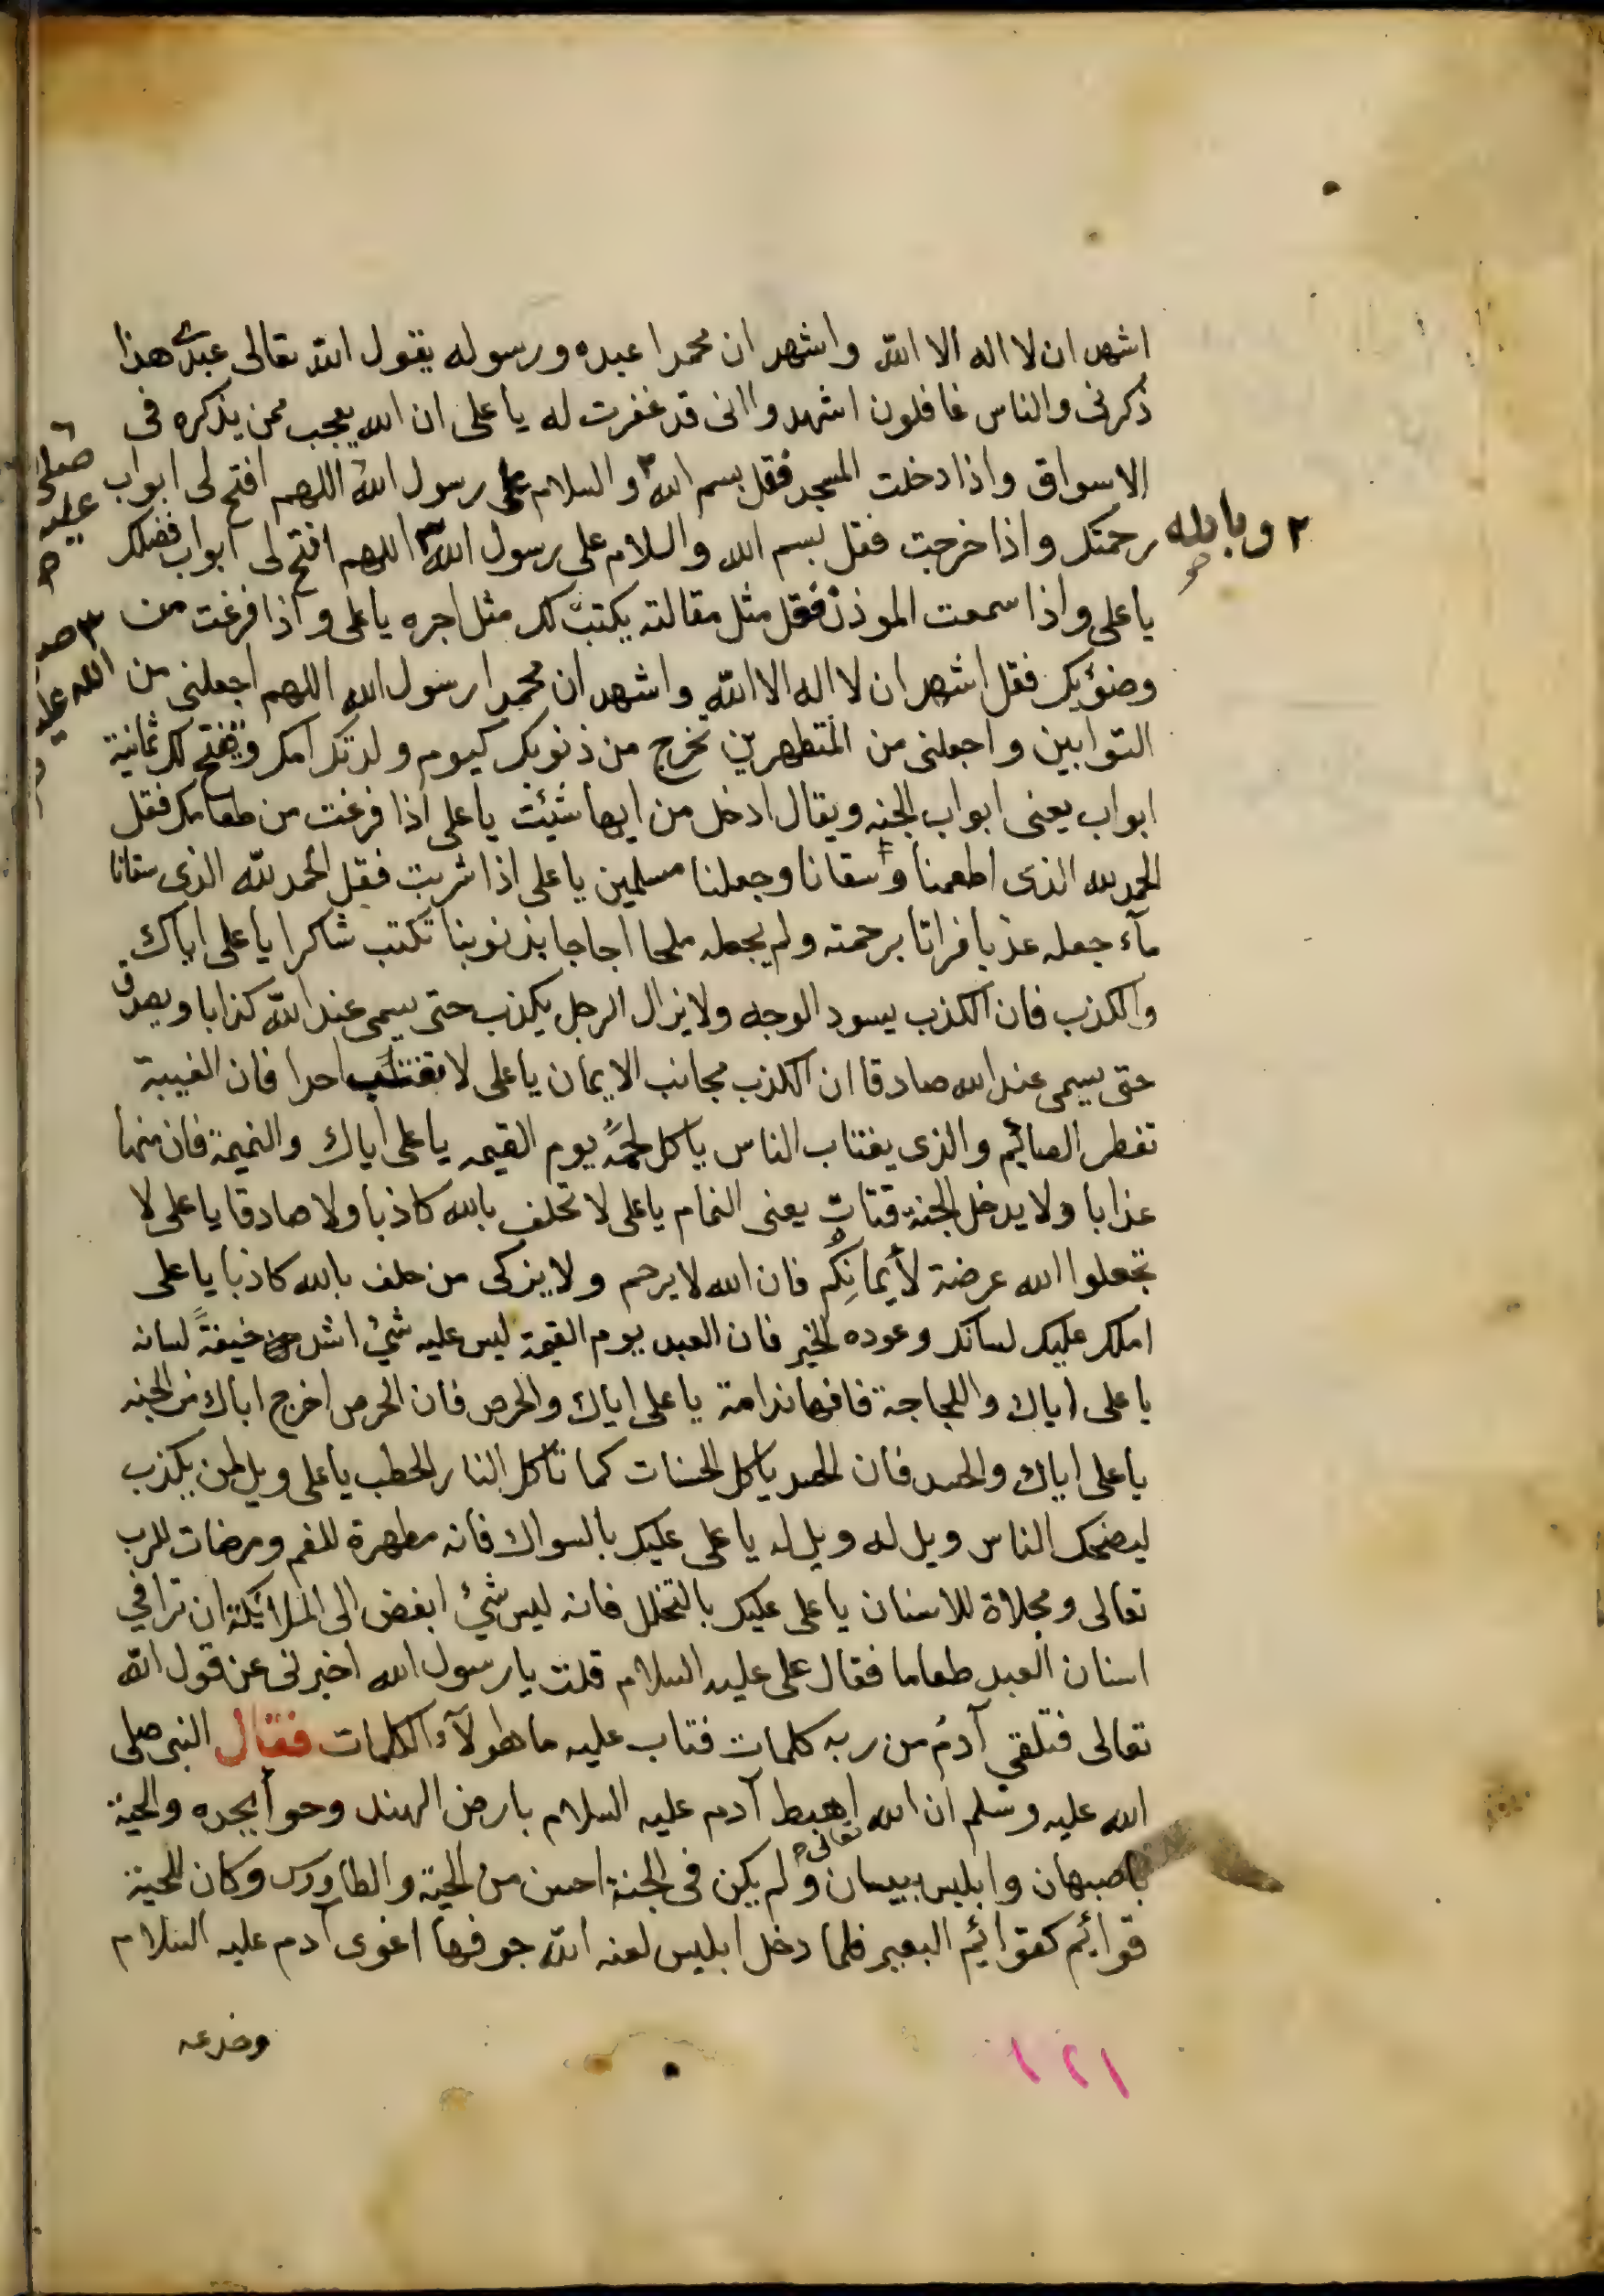 اشهد ان لا اله الا الله واشهد ان محمدا عبده ورسوله يقول الله تعالى عبدى هذا
ذكرنى والناس غافلون اشهدوا انى قد غفرت له يا على ان الله يعجب ممن يذكره فى
الاسواق واذا دخلت المسجد فقل بسم الله٢ والسلام على رسول الله اللهم افتح لى ابواب
رحمتك واذا خرجت فقل بسم الله والسلام على رسول الله٣ اللهم افتح لى ابواب فضلك
يا على واذا سمعت الموذن فقل مثل مقالته يكتب لك مثل اجره يا على واذا فرغت من
وضوئك فقل اشهد ان لا اله الا الله واشهد ان محمدا رسول الله اللهم اجعلنى من
التوابين واجعلنى من المتطهرين تخرج من ذنوبك كيوم ولدتك امك ويفتح لك ثمانية
ابواب يعنى ابواب الجنه ويقال ادخل من ايها شئت يا على اذا فرغت من طعامك فقل
الحمد لله الذى اطعمنا وسقانا وجعلنا مسلمين يا على اذا شربت فقل الحمد لله الذى سقانا
مآء جعله عذبا فراتا برحمته ولم يجعله ملحا اجاجا بذنوبنا تكتب شاكرا يا على اياك
والكذب فان الكذب يسود الوجه ولا يزال الرجل يكذب حتى يسمى عند الله كذابا ويصدق
حتى يسمى عند الله صادقا ان الكذب مجانب الايمان يا على لا تغتب احدا فان الغيبة
تفطر الصائيم والذى يغتاب الناس ياكل لحمه يوم القيمه يا على اياك والنميمة فان منها
عذابا ولا يدخل الجنة قتات يعنى النمام يا على لا تحلف بالله كاذبا ولا صادقا يا على لا
تجعلوا الله عرضة لأيمانِكُم فان الله لا يرحم ولا يزكى من حلف بالله كاذبا يا على
املك عليك لسانك وعوده الخير فان العبد يوم القيمة ليس عليه شئ اشد من خيفةً لسانه
يا على اياك واللجاجة فافها ندامة يا على اياك والحرص فان الحرص اخرج اباك من الجنه
يا على اياك والحسد فان الحسد ياكل الحسنات كما تاكل النار الحطب يا على ويل لمن يكذب
ليضحك الناس ويل له ويل له يا على عليك بالسواك فانه مطهرة للفم ومرضات للرب
تعالى ومجلاة للاسنان يا على عليك بالتخلل فانه ليس شئ ابغض الى الملائيكة ان ترا فى
اسنان العبد طعاما فقال على عليه السلام قلت يا رسول الله اخبرنى عن قول الله
تعالى فتلقى آدم من ربه كلمات فتاب عليه ما هولآء الكلمات فقال النبى صلى
الله عليه وسلم ان الله تعالى اهبط آدم عليه السلام بارض الهند وحوأ بجده والحية
باصبهان وابليس ببيسان ولم يكن فى الجنة احسن من الحية والطاووس وكان للحية
قوائيم كقوائيم البعير فلما دخل ابليس لعنه الله جوفها اغوى آدم عليه السلام
وخدعه
١٢١
٢ وبالله
صح
صلى
عليه
٣ صلى
الله عليه